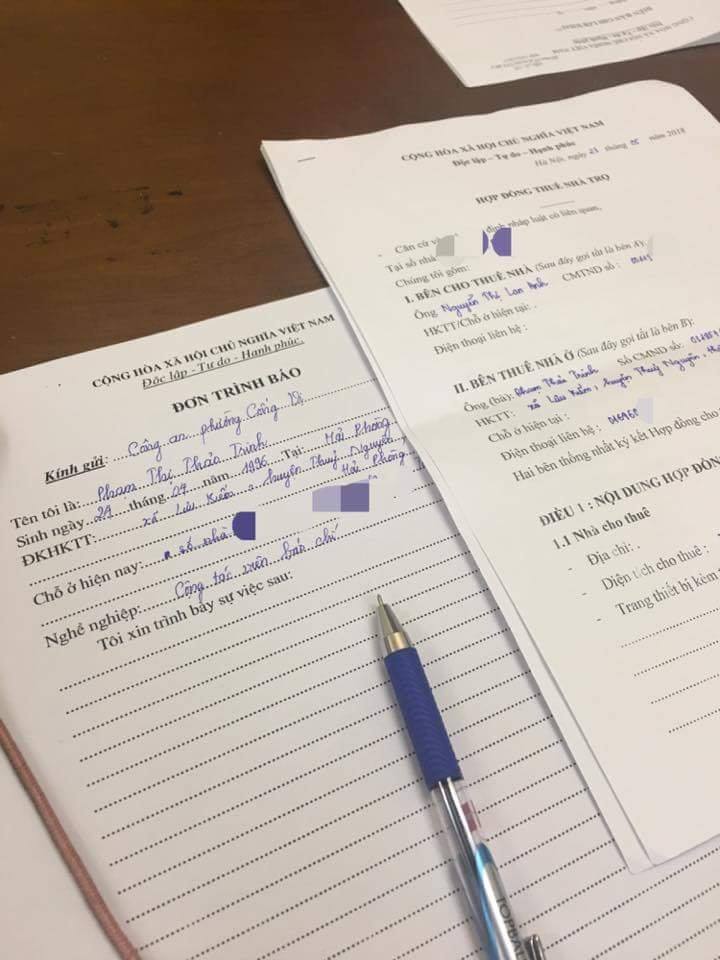 CỘNG HÒA XÃ HỘI CHỦ NGHĨA VIỆT NAM
Độc lập - Tự do - Hạnh phúc.
ĐƠN TRÌNH BÁO
Kính gửi: Công an phường Cống Vị
Tên tôi là: Phạm Thị Thảo Trinh
Sinh ngày 24 tháng 04 năm 1996 Tại: Hải Phòng
ĐKHKTT: xã Lưu Kiếm, huyện Thuỷ Nguyên,
Hải Phòng
Chỗ ở hiện nay: số nhà
Nghề nghiệp: Cộng tác viên báo chí
Tôi xin trình bày sự việc sau:
CỘNG HÒA XÃ HỘI CHỦ NGHĨA VIỆT NAM
Độc lập - Tự do - Hạnh phúc
Hà Nội, ngày 23 tháng 05 năm 2018
HỢP ĐỒNG THUÊ NHÀ TRỌ
- Căn cứ định pháp luật có liên quan,
Tại số nhà
Chúng tôi gồm:
I. BÊN CHO THUÊ NHÀ (Sau đây gọi tắt là bên A):
Ông Nguyễn Thị Lan Anh CMTND số :
HKTT/Chỗ ở hiện tại: .
Điện thoại liên hệ :
II. BÊN THUÊ NHÀ Ở (Sau đây gọi tắt là bên B):
Ông (bà): Phạm Thảo Trinh Số CMND số:
HKTT: xã Lưu Kiếm, huyện Thuỷ Nguyên,
Chỗ ở hiện tại :
Điện thoại liên hệ :
Hai bên thống nhất ký kết Hợp đồng cho
ĐIỀU 1 : NỘI DUNG HỢP ĐỒN
1.1 Nhà cho thuê
- Địa chỉ: .
- Diện tích cho thuê :
- Trang thiết bị kèm
TOPBAL